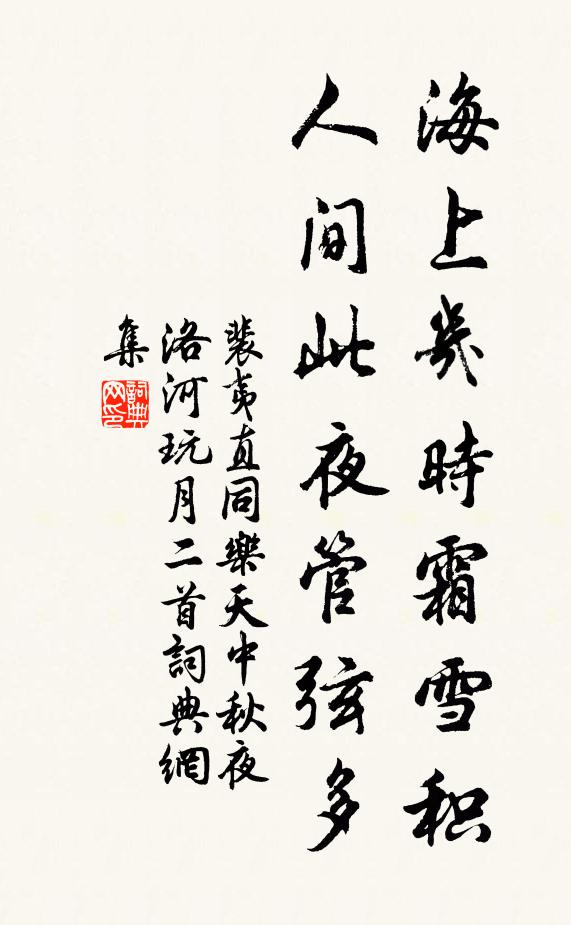 海上幾時霜雪积
人间此夜管弦多
裴夷直同樂天中秋夜
洛河玩月二首詞典網
集
詞典
网印